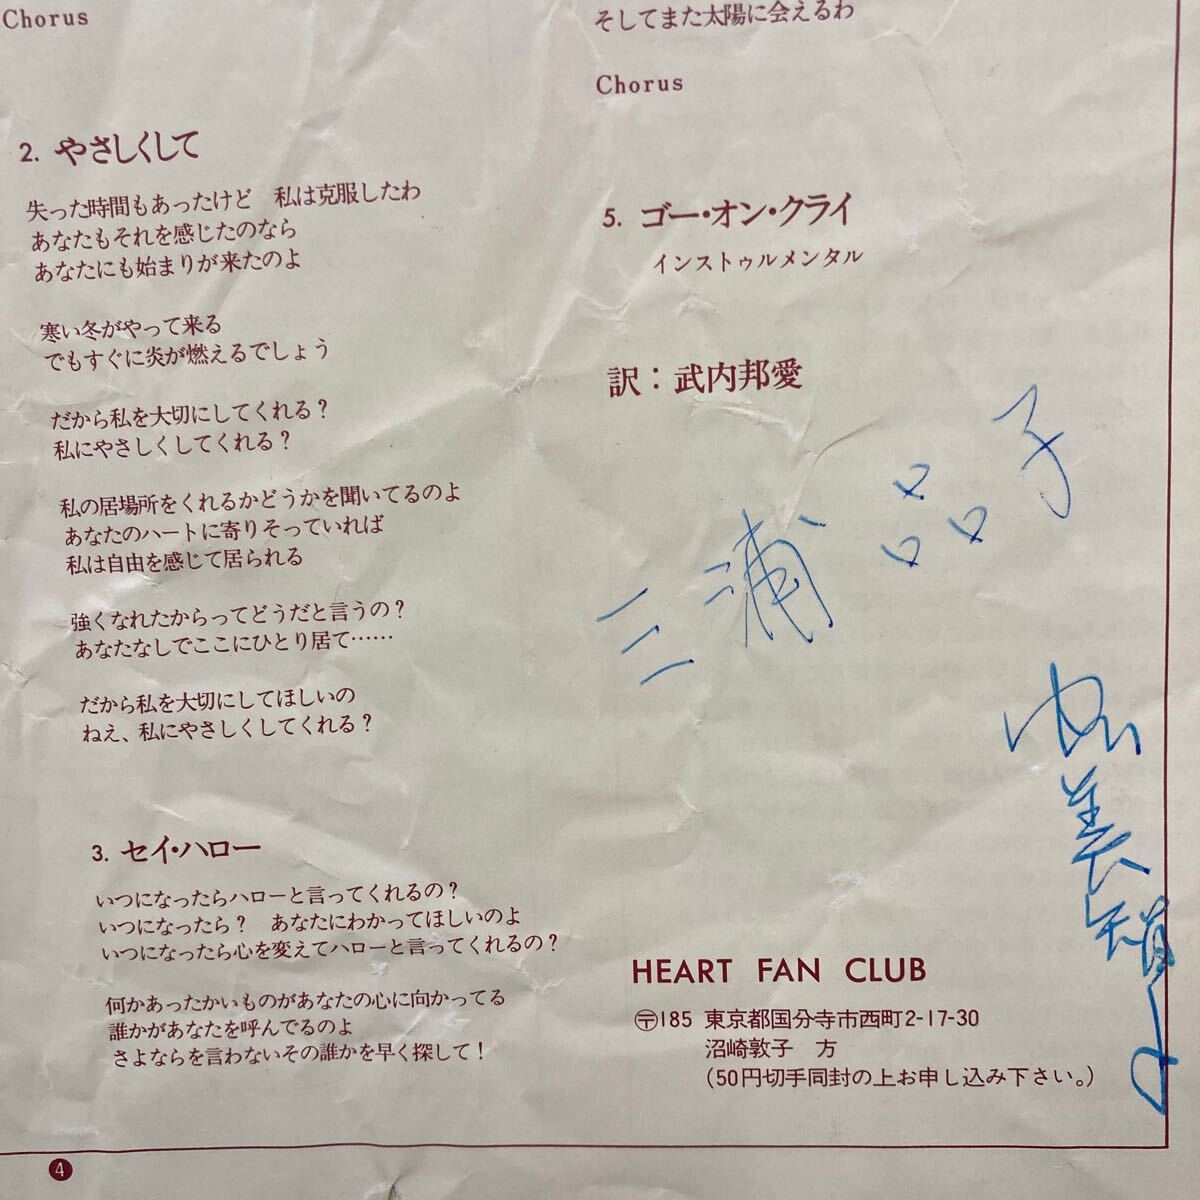 Chorus
2. やさしくして
失った時間もあったけど　私は克服したわ
あなたもそれを感じたのなら
あなたにも始まりが来たのよ
寒い冬がやって来る
でもすぐに炎が燃えるでしょう
だから私を大切にしてくれる？
私にやさしくしてくれる？
私の居場所をくれるかどうかを聞いてるのよ
あなたのハートに寄りそっていれば
私は自由を感じて居られる
強くなれたからってどうだと言うの？
あなたなしでここにひとり居て……
だから私を大切にしてほしいの
ねえ、私にやさしくしてくれる？
3. セイ・ハロー
いつになったらハローと言ってくれるの？
いつになったら？　あなたにわかってほしいのよ
いつになったら心を変えてハローと言ってくれるの？
何かあったかいものがあなたの心に向かってる
誰かがあなたを呼んでるのよ
さよならを言わないその誰かを早く探して！
4
そしてまた太陽に会えるわ
Chorus
5. ゴー・オン・クライ
インストゥルメンタル
訳：武内邦愛
三浦 品子
美
HEART FAN CLUB
〒185 東京都国分寺市西町2-17-30
沼崎敦子　方
（50円切手同封の上お申し込み下さい。）